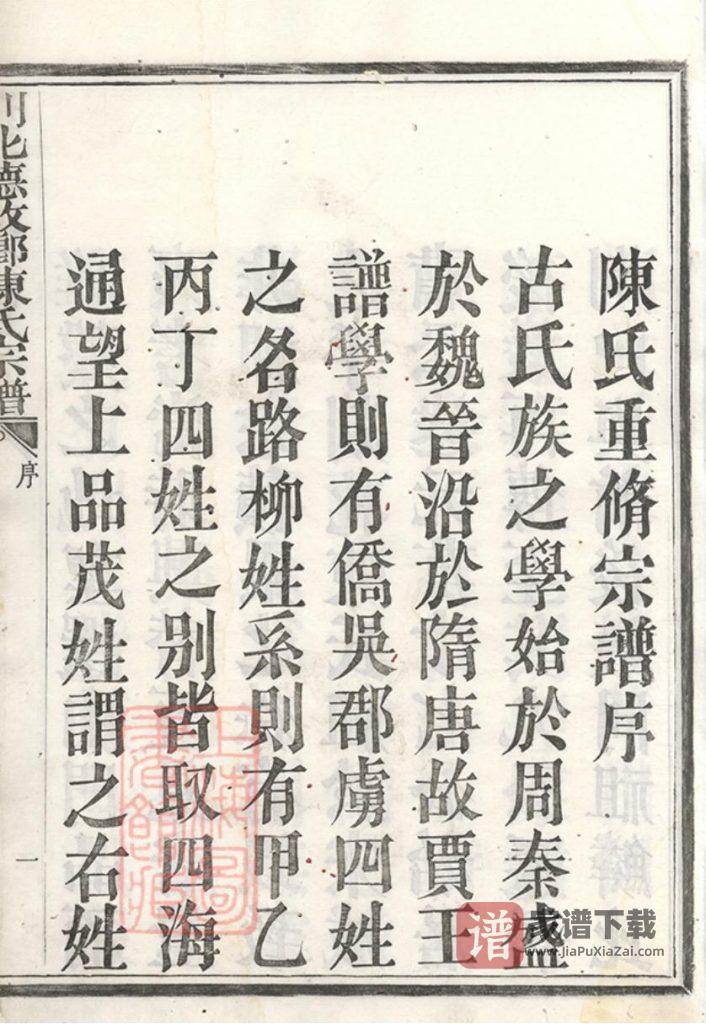 陳氏重脩宗譜序
古氏族之學始於周秦盛
於魏晉沿於隋唐故賈王
譜學則有僑吳郡虜四姓
之名路柳姓系則有甲乙
丙丁四姓之別皆取四海
通望上品茂姓謂之右姓
川北德政鄉陳氏宗譜
序
一
譜
家谱下载
www.JiaPuXiaZai.com